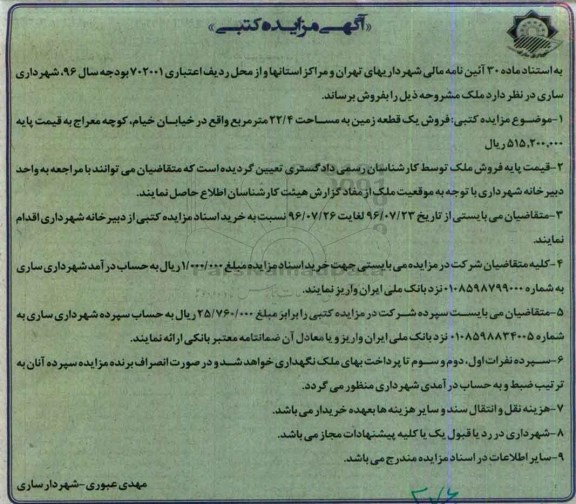 «آگهی مزایده کتبی»
به استناد ماده ۳۰ آئین نامه مالی شهرداریهای تهران و مراکز استانها و از محل ردیف اعتباری ۷۰۲۰۰۱ بودجه سال ۹۶، شهرداری
ساری در نظر دارد ملک مشروحه ذیل را بفروش برساند.
۱-موضوع مزایده کتبی: فروش یک قطعه زمین به مساحت ۲۲/۴ مترمربع واقع در خیابان خیام، کوچه معراج به قیمت پایه
۵۱۵,۲۰۰,۰۰۰ ریال
۲-قیمت پایه فروش ملک توسط کارشناسان رسمی دادگستری تعیین گردیده است که متقاضیان می توانند با مراجعه به واحد
دبیرخانه شهرداری با توجه به موقعیت ملک از مفاد گزارش هیئت کارشناسان اطلاع حاصل نمایند.
۳-متقاضیان می بایستی از تاریخ ۹۶/۰۷/۲۳ لغایت ۹۶/۰۷/۲۶ نسبت به خرید اسناد مزایده کتبی از دبیرخانه شهرداری اقدام
نمایند.
۴-کلیه متقاضیان شرکت در مزایده می بایستی جهت خرید اسناد مزایده مبلغ ۱/۰۰۰/۰۰۰ ریال به حساب درآمد شهرداری ساری
به شماره ۰۱۰۸۵۹۸۷۹۹۰۰۰ نزد بانک ملی ایران واریز نمایند.
۵-متقاضیان می بایست سپرده شرکت در مزایده کتبی را برابر مبلغ ۲۵/۷۶۰/۰۰۰ ریال به حساب سپرده شهرداری ساری به
شماره ۰۱۰۸۵۹۸۸۳۴۰۰۵ نزد بانک ملی ایران واریز و یا معادل آن ضمانتنامه معتبر بانکی ارائه نمایند.
۶-سپرده نفرات اول، دوم و سوم تا پرداخت بهای ملک نگهداری خواهد شد و در صورت انصراف برنده مزایده سپرده آنان به
ترتیب ضبط و به حساب درآمدی شهرداری منظور می گردد.
۷-هزینه نقل و انتقال سند و سایر هزینه ها بعهده خریدار می باشد.
۸-شهرداری در رد یا قبول یک یا کلیه پیشنهادات مجاز می باشد.
۹-سایر اطلاعات در اسناد مزایده مندرج می باشد.
مهدی عبوری -شهردار ساری